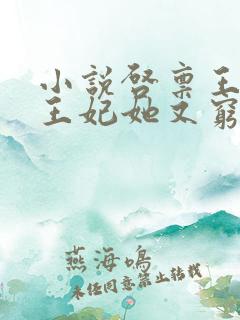 小說啓禀王
王妃她又窮
燕海鳴
未经同意禁止转载